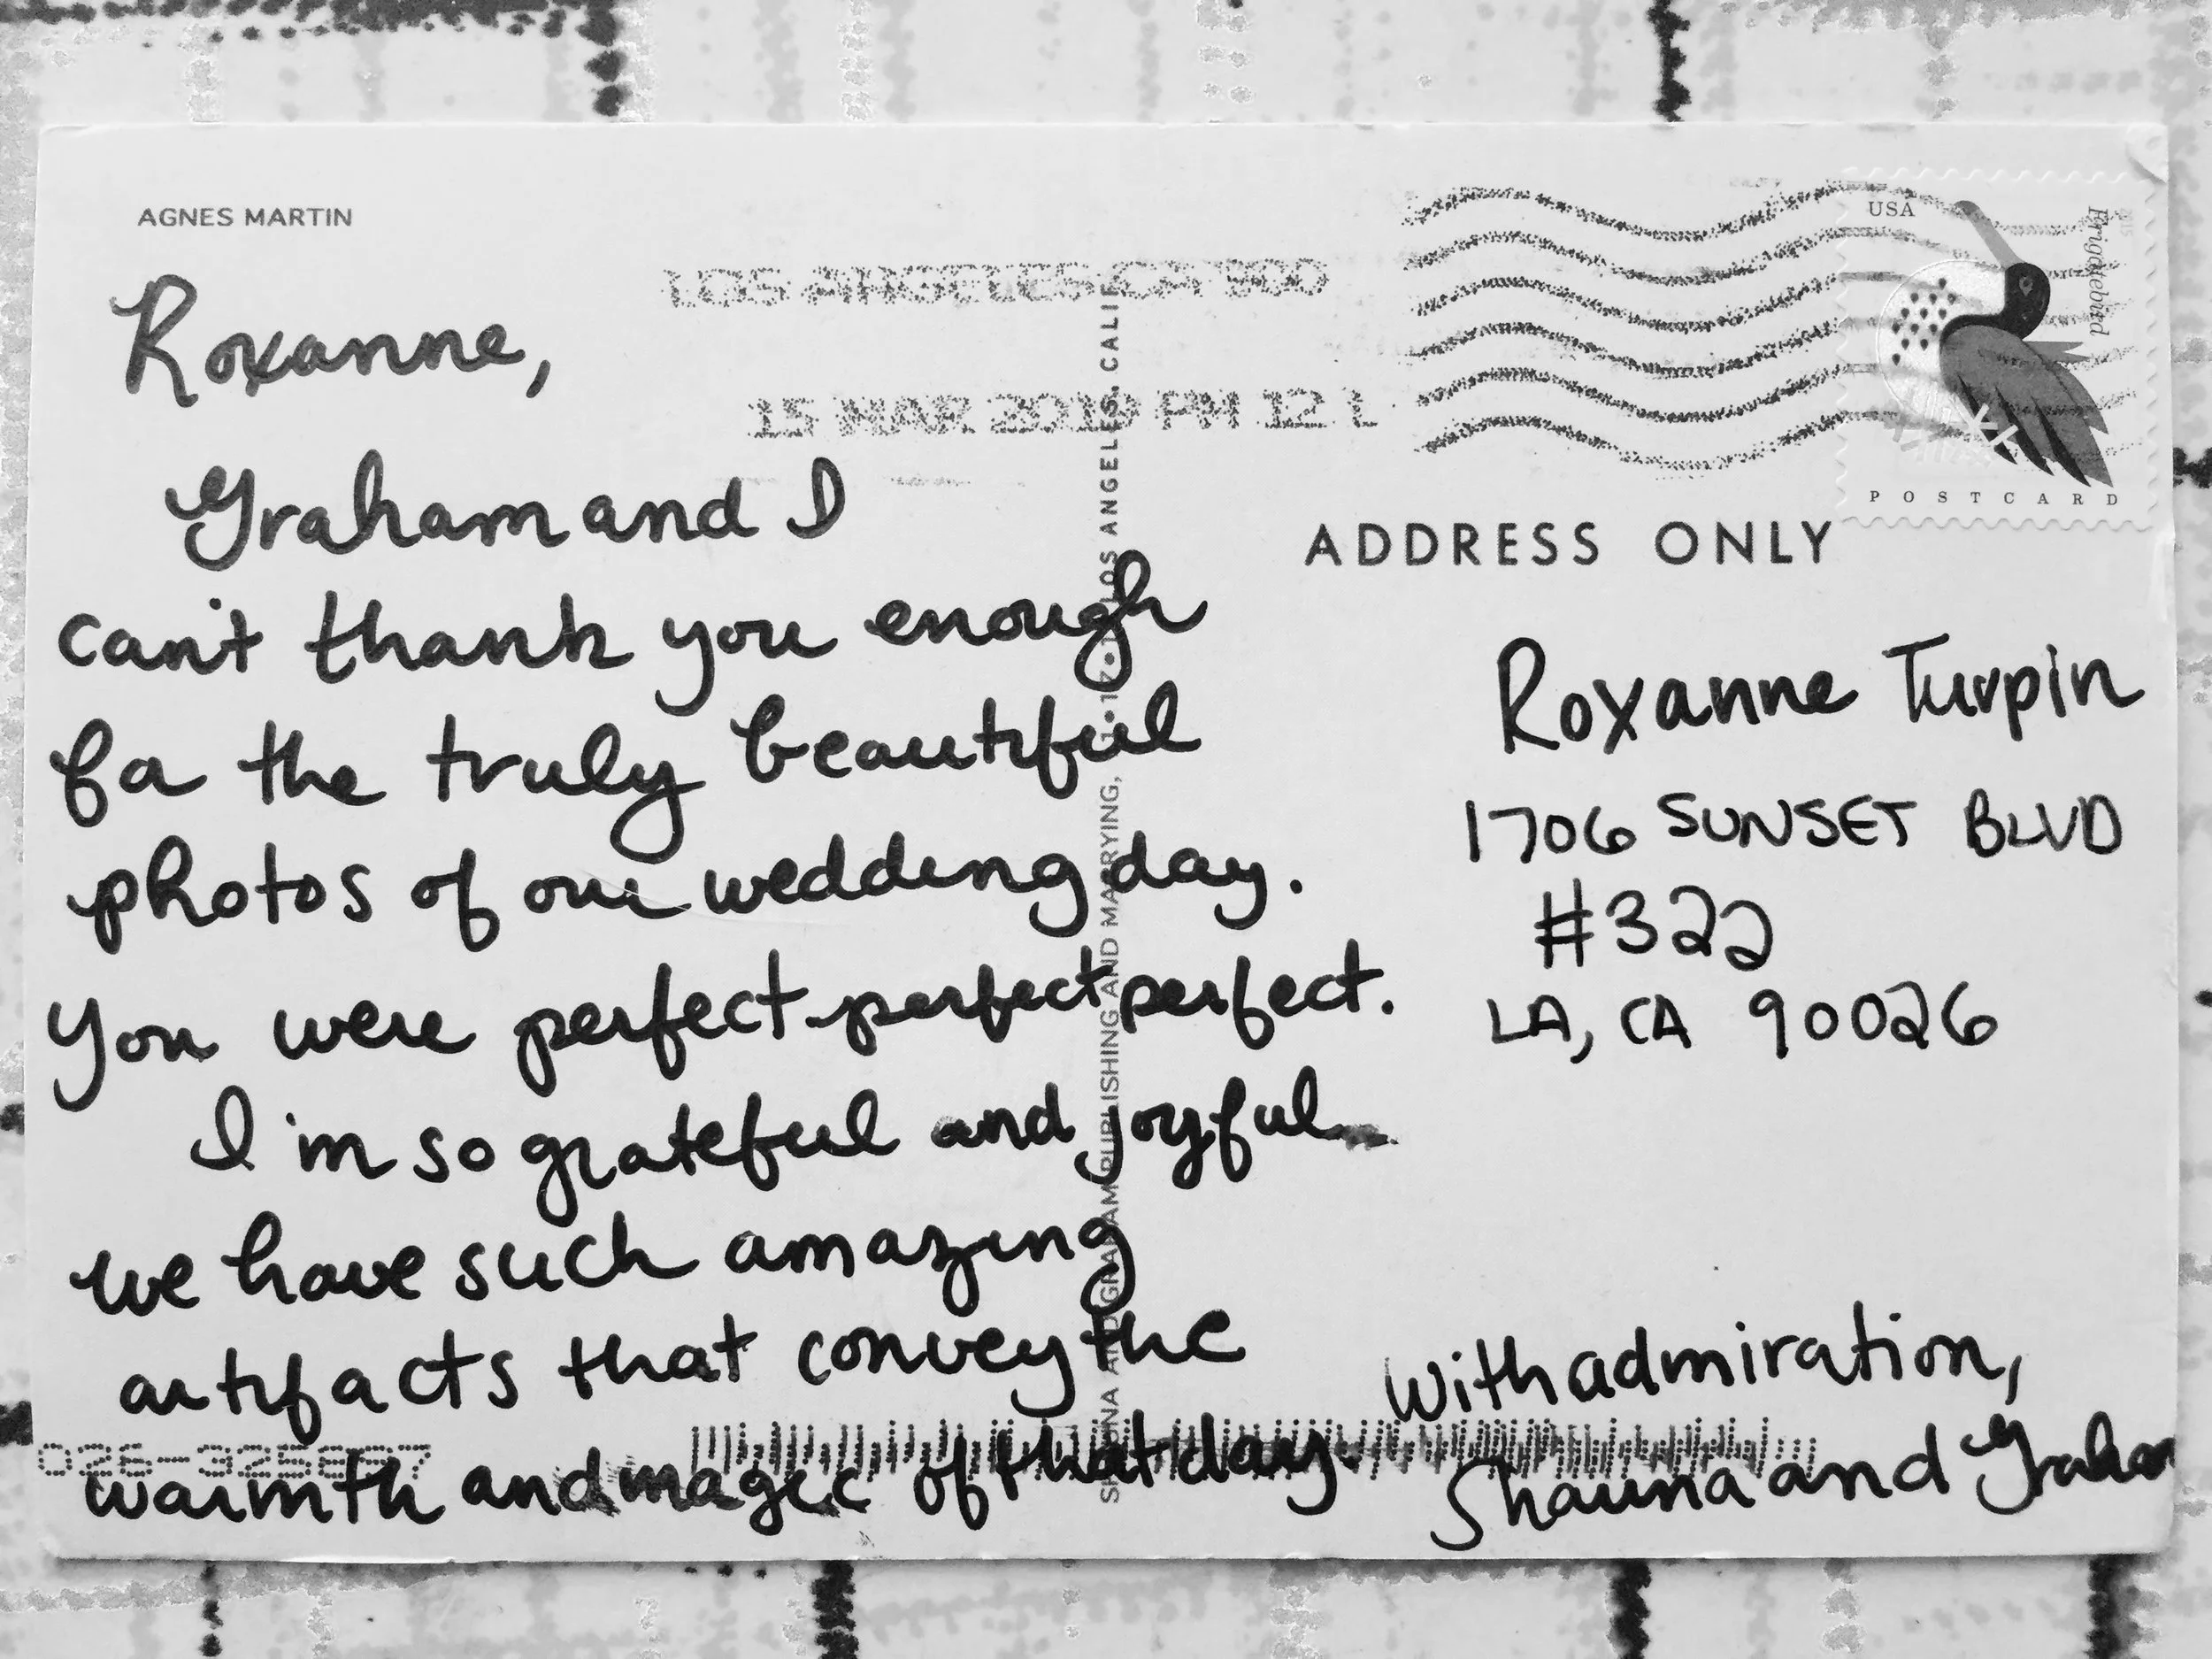 AGNES MARTIN
LOS ANGELES CA 900
15 MAR 2019 PM 12 L
USA
POSTCARD
ADDRESS ONLY
Roxanne,
Graham and I
can't thank you enough
for the truly beautiful
photos of our wedding day.
You were perfect perfect perfect.
I'm so grateful and joyful
we have such amazing
artifacts that convey the
warmth and magic of that day.
Roxanne Turpin
1706 SUNSET BLVD
#322
LA, CA 90026
With admiration,
Shauna and Graham
SHAUNA AND GRAHAM PUBLISHING AND MARRYING, LOS ANGELES, CALIF